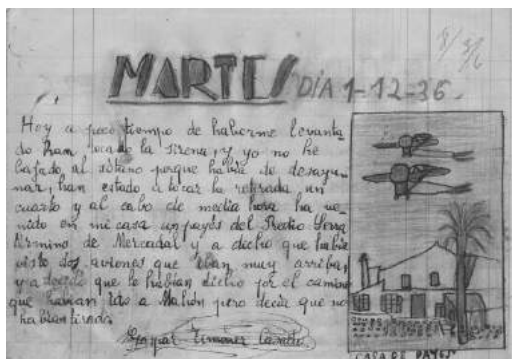 MARTES DÍA 1-12-36.
Hoy a poco tiempo de haberme levanta
do han tocado la sirena, y yo no he
bajado al sótano porque había de desayu-
nar, han estado a tocar la retirada un
cuarto y al cabo de media hora ha ve-
nido en mi casa un payés del Predio Serra
término de Mercadal y a dicho que había
visto dos aviones que iban muy arriba,
y a decido que le habían dicho por el camino
que habían ido a Mahón pero decía que no
habían tirado.
Gaspar Timoner
CASA DE PAYÉS